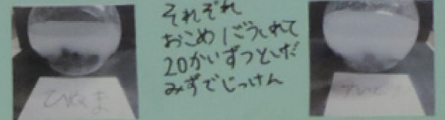 それぞれ
おこめ1ごういれて
20かいずつといだ
みずでじっけん
ひぬま